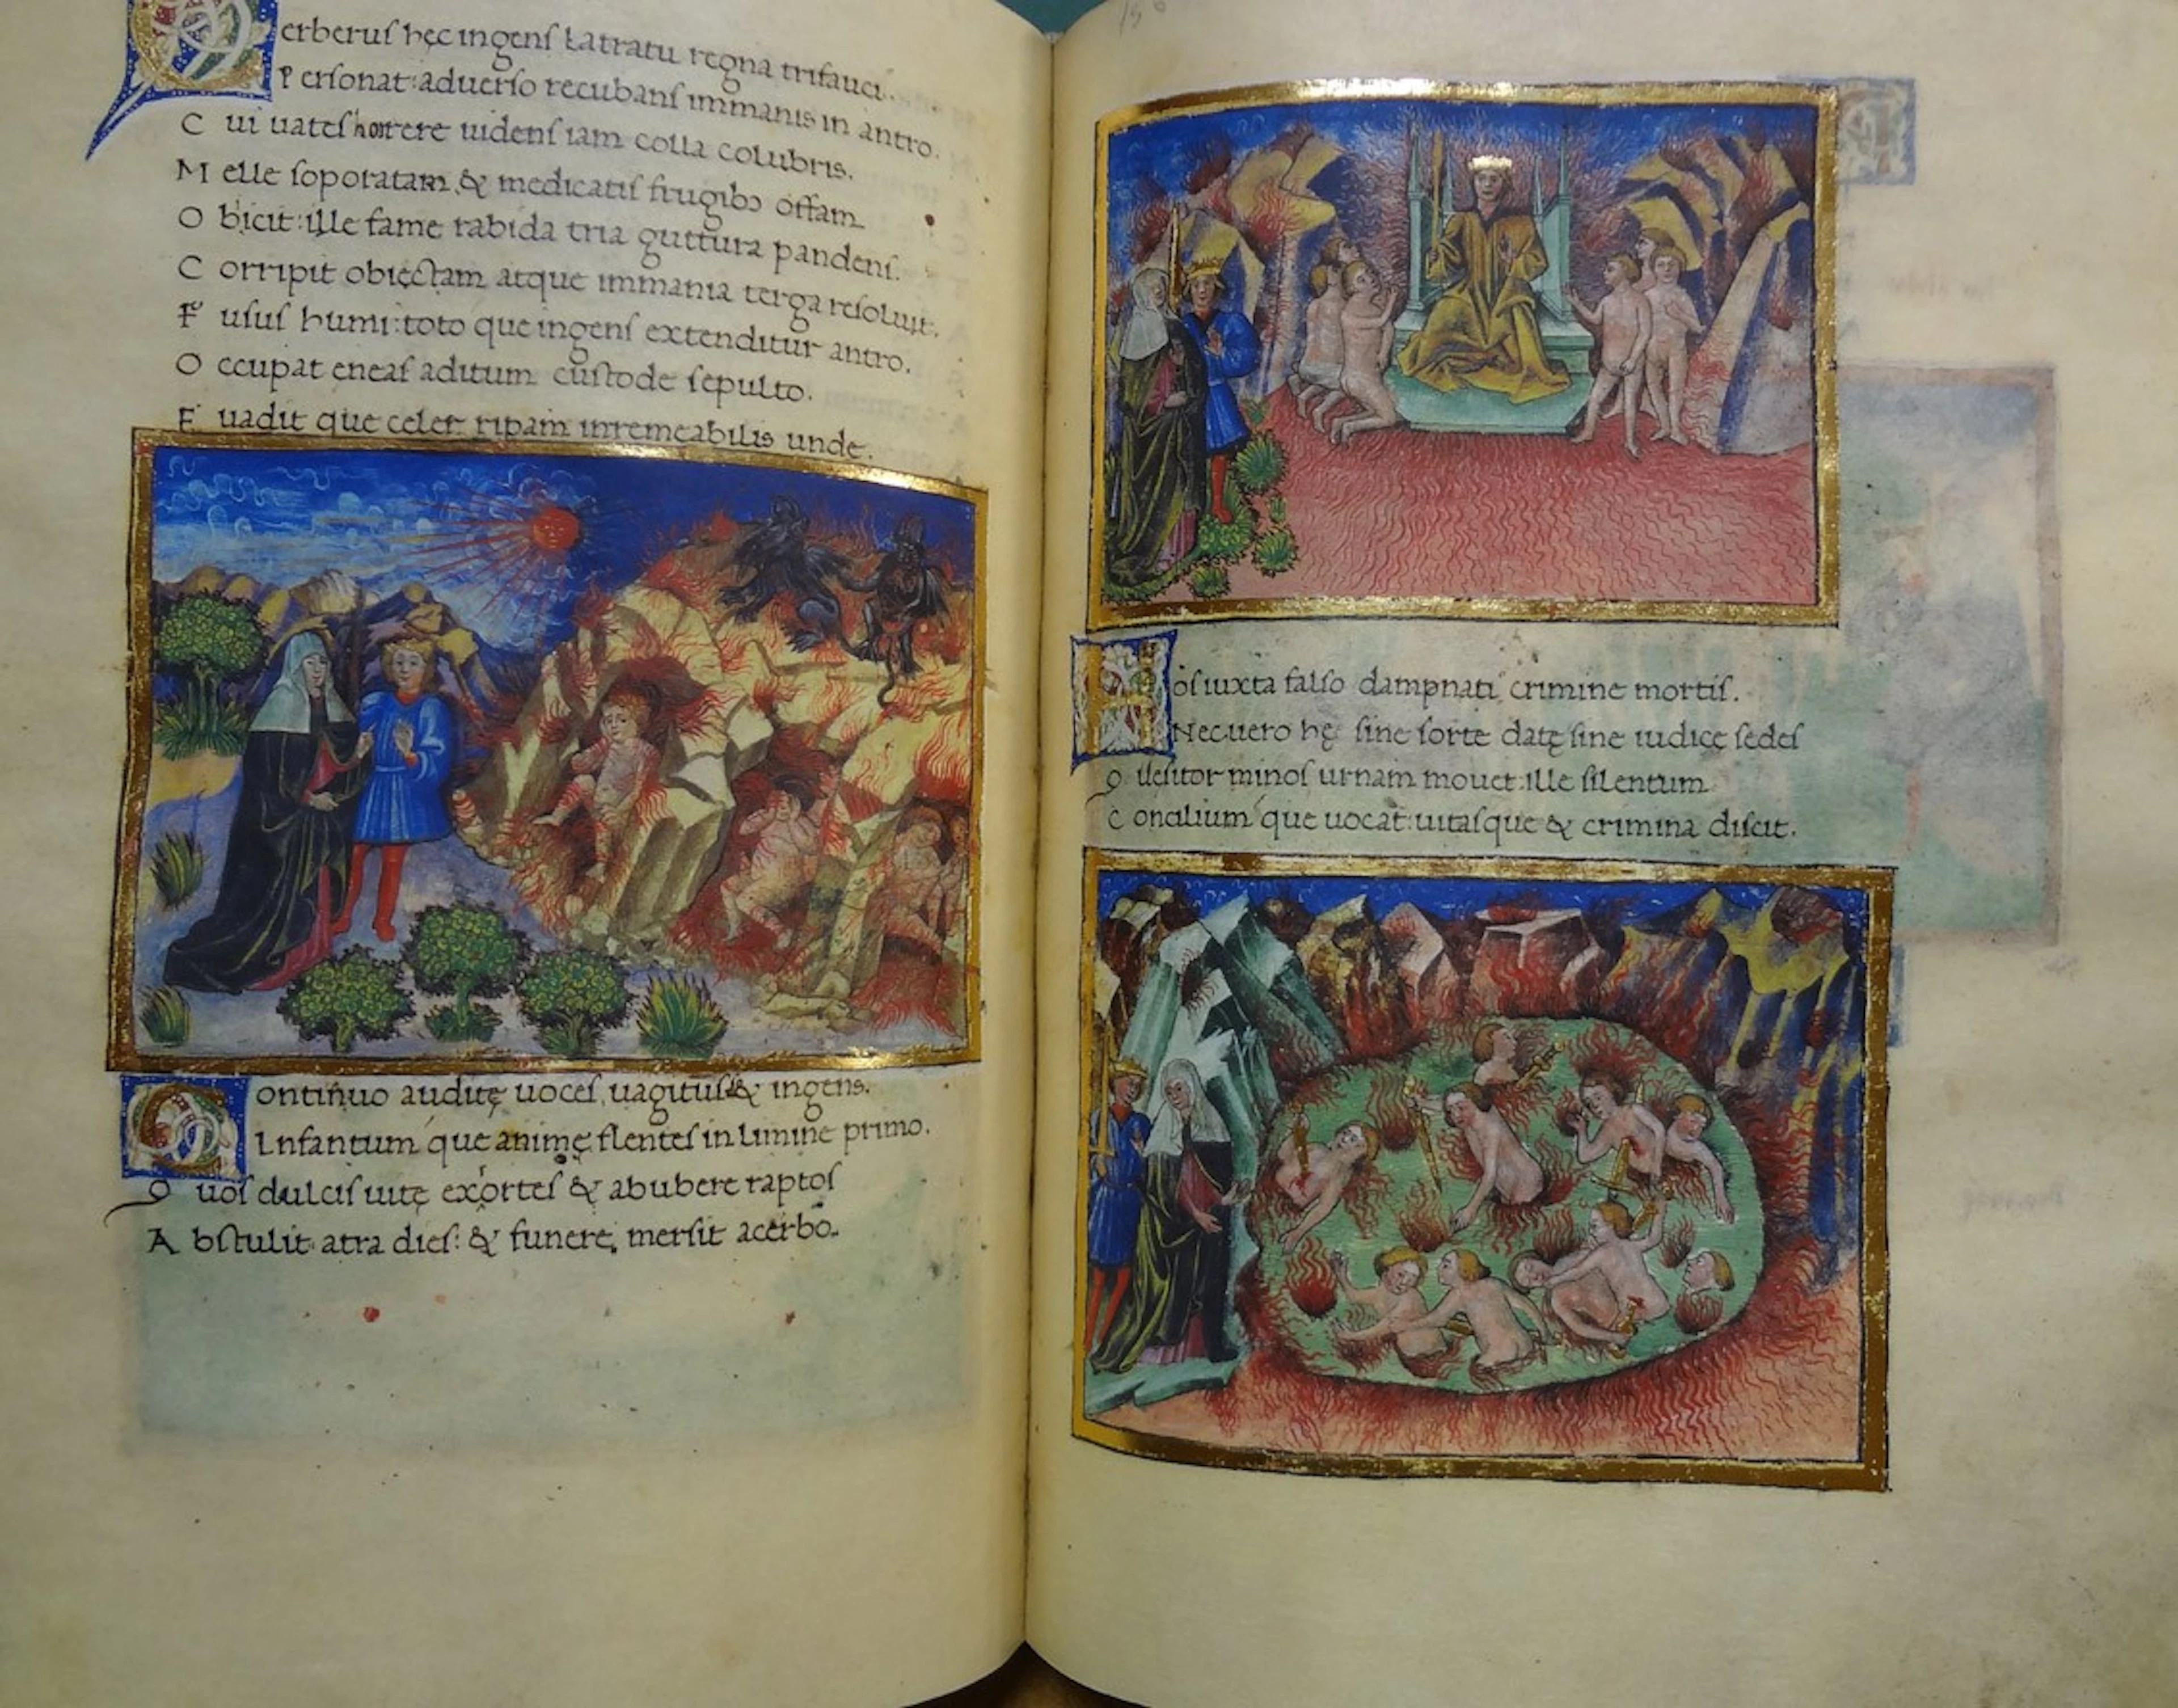 Cerberus hęc ingens latratu regna trifauci.
Personat: aduerso recubans immanis in antro.
Cui uates horrere uidens iam colla colubris.
Melle soporatam & medicatis frugibꝫ offam
Obicit: ille fame rabida tria guttura pandens.
Corripit obiectam atque immania terga resoluit.
Fusus humi: toto que ingens extenditur antro.
Occupat eneas aditum custode sepulto.
Euadit que celer ripam inremeabilis unde.
Continuo auditę uoces, uagitus & ingens.
Infantum que animę flentes in limine primo.
Quos dulcis uitę exortes & abubere raptos
Abstulit atra dies: & funere mersit acerbo.
150
Hos iuxta falso dampnati crimine mortis.
Necuero hę sine sorte datę sine iudice sedes
Quesitor minos urnam mouet: ille silentum
Concilium que uocat: uitasque & crimina discit.